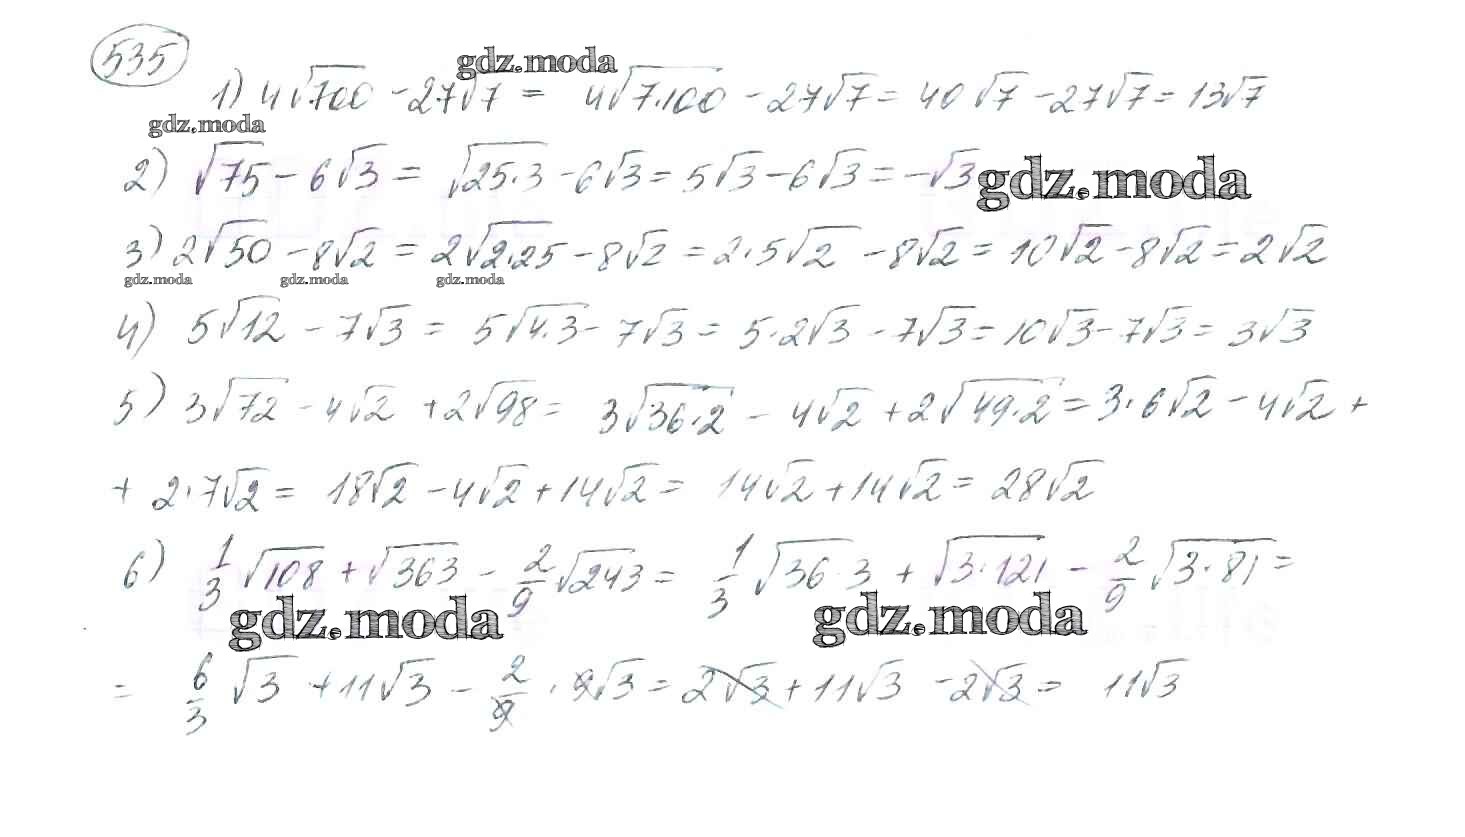 535
gdz.moda
1) 4√700 - 27√7 = 4√7·100 - 27√7 = 40√7 - 27√7 = 13√7
gdz.moda
2) √75 - 6√3 = √25·3 - 6√3 = 5√3 - 6√3 = -√3
gdz.moda
3) 2√50 - 8√2 = 2√2·25 - 8√2 = 2·5√2 - 8√2 = 10√2 - 8√2 = 2√2
gdz.moda gdz.moda gdz.moda
4) 5√12 - 7√3 = 5√4·3 - 7√3 = 5·2√3 - 7√3 = 10√3 - 7√3 = 3√3
5) 3√72 - 4√2 + 2√98 = 3√36·2 - 4√2 + 2√49·2 = 3·6√2 - 4√2 +
+ 2·7√2 = 18√2 - 4√2 + 14√2 = 14√2 + 14√2 = 28√2
6) 1/3 √108 + √363 - 2/9 √243 = 1/3 √36·3 + √3·121 - 2/9 √3·81 =
gdz.moda gdz.moda
= 6/3 √3 + 11√3 - 2/9 · 9√3 = 2√3 + 11√3 - 2√3 = 11√3